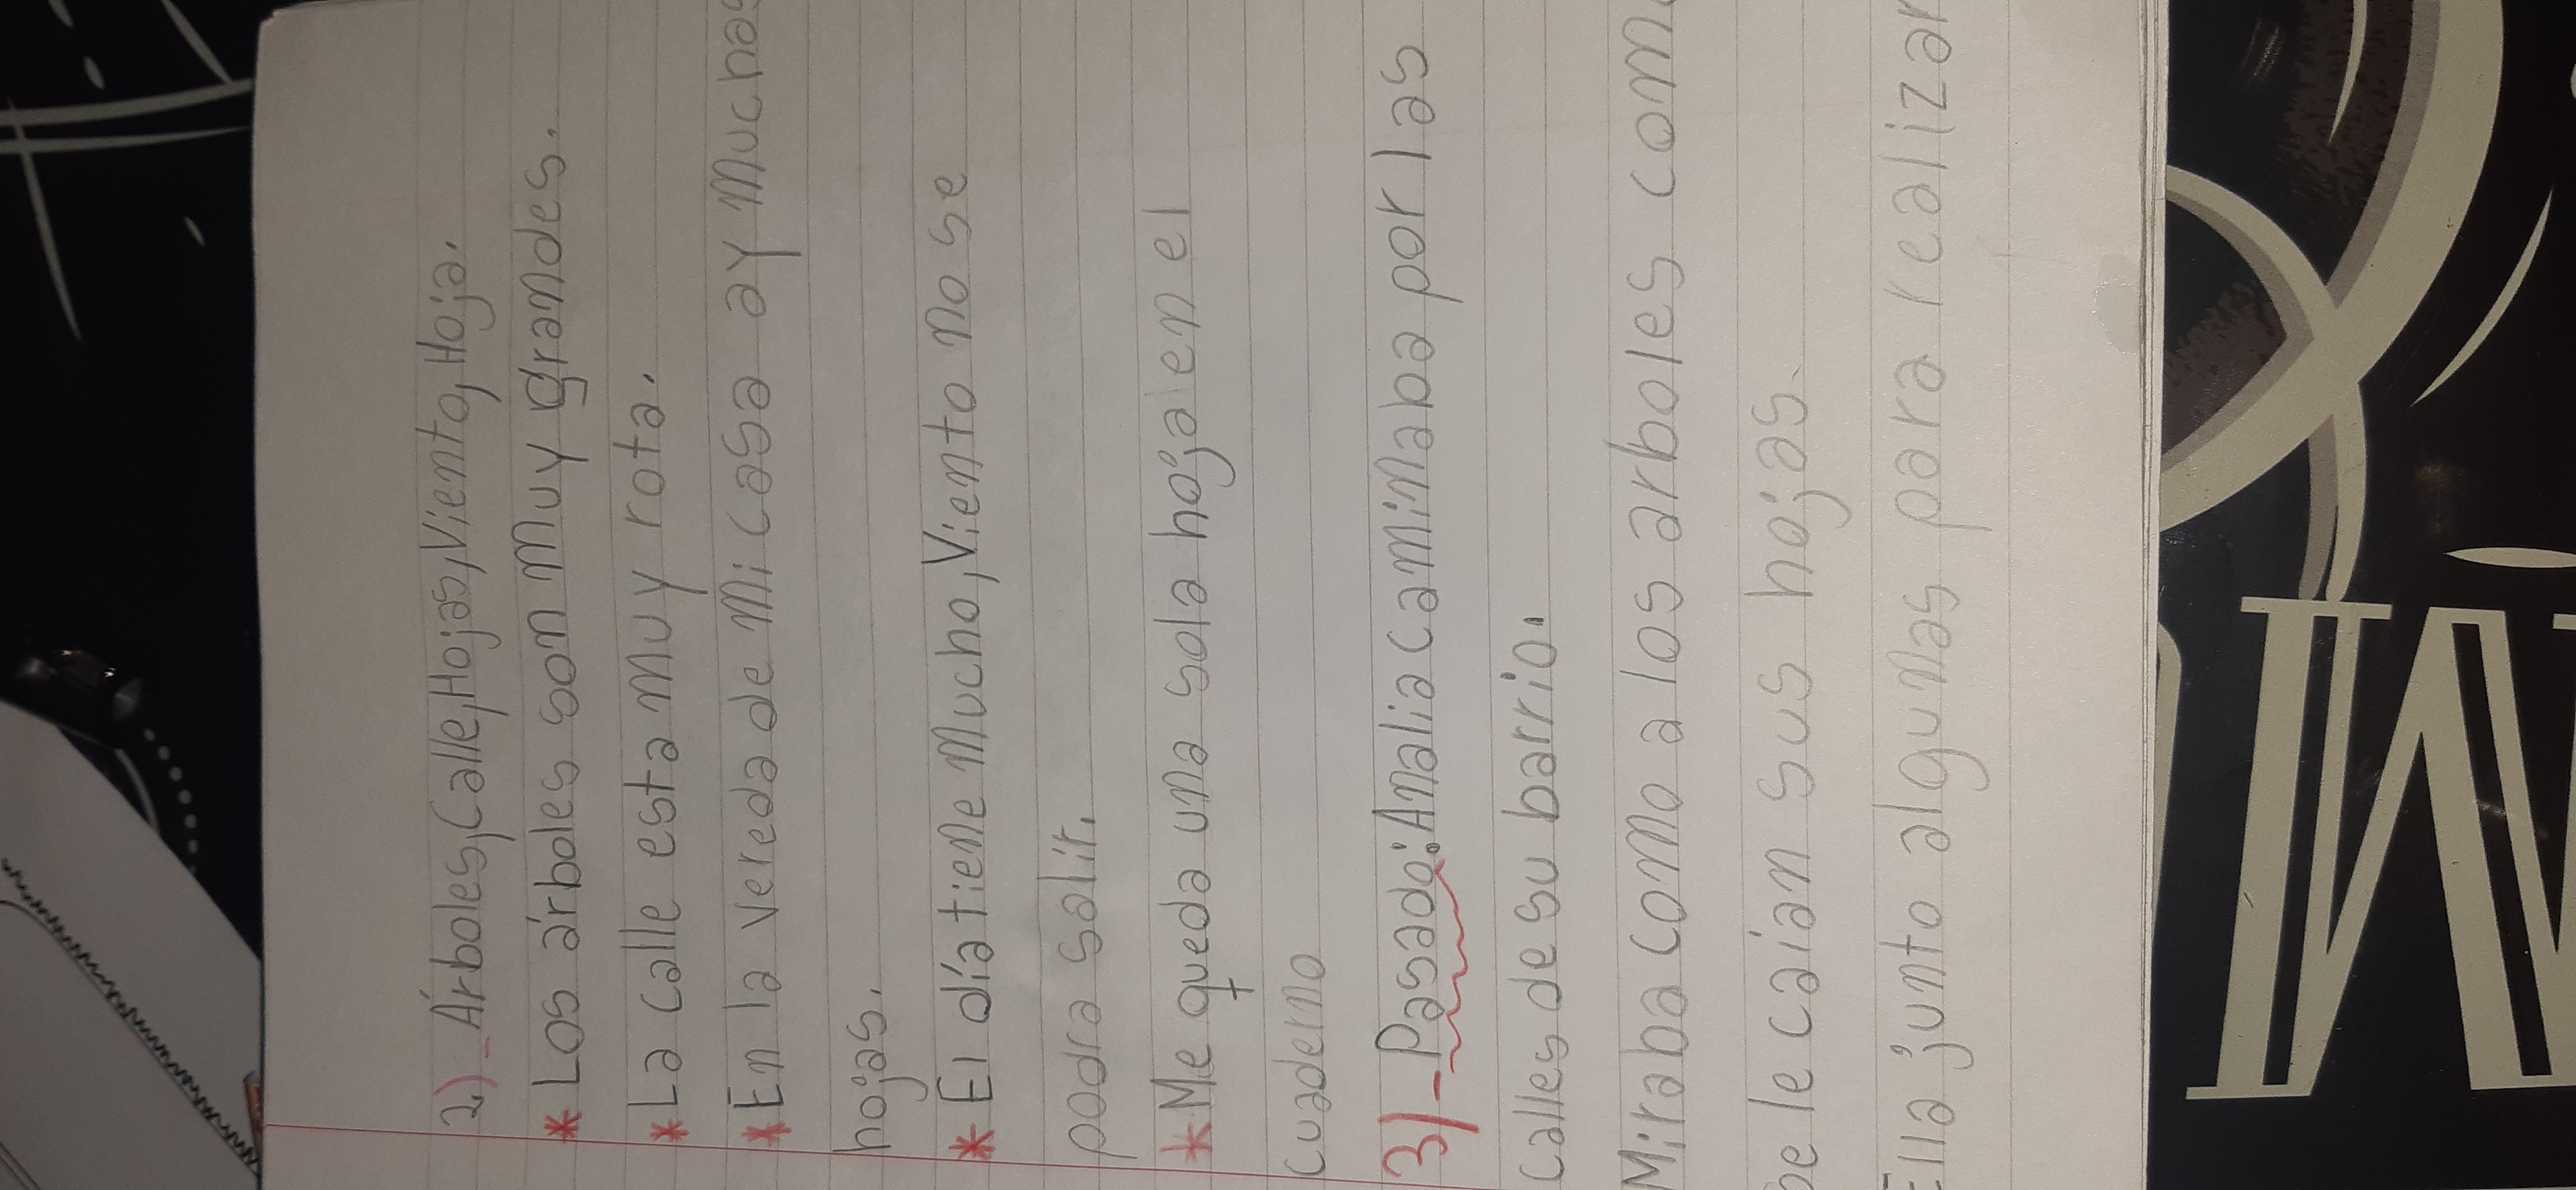 2)_ Árboles, Calle, Hojas, Viento, Hoja.
* Los árboles son muy grandes.
* La calle esta muy rota.
* En la vereda de mi casa ay muchas
hojas.
* El día tiene mucho, Viento no se
podra salir.
* Me queda una sola hoja en el
cuaderno
3)_ Pasado: Amalia caminaba por las
calles de su barrio.
Miraba como a los arboles com
se le caían sus hojas.
Ella junto algunas para realizar